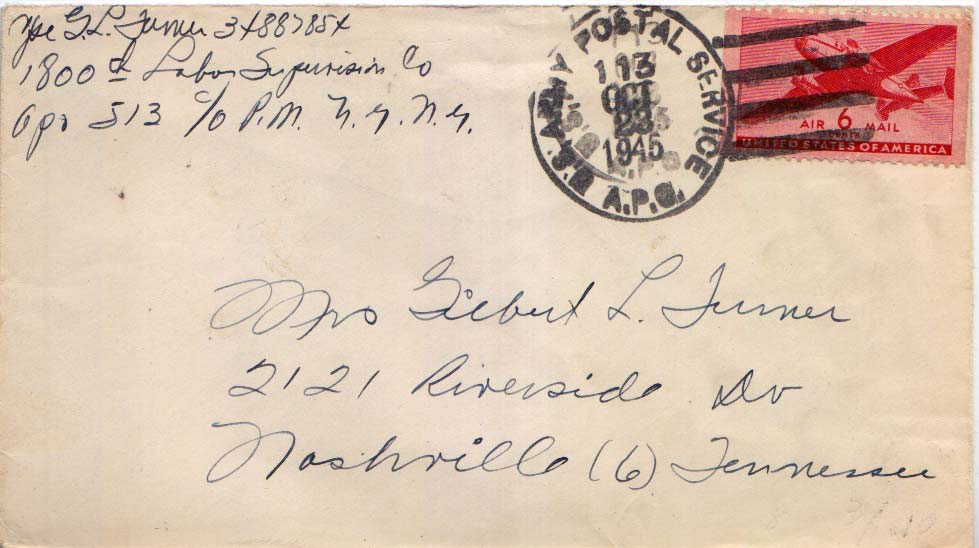 Pfc G. L. Turner 34887854
1800th Labor Supervision Co
Apo 513 c/o P.M. N.Y. N.Y.
U.S. ARMY POSTAL SERVICE
A.P.O.
OCT
23
1945
AIR 6 MAIL
CENTS
UNITED STATES OF AMERICA
Mrs Gilbert L. Turner
2121 Riverside Dr
Nashville (6) Tennessee